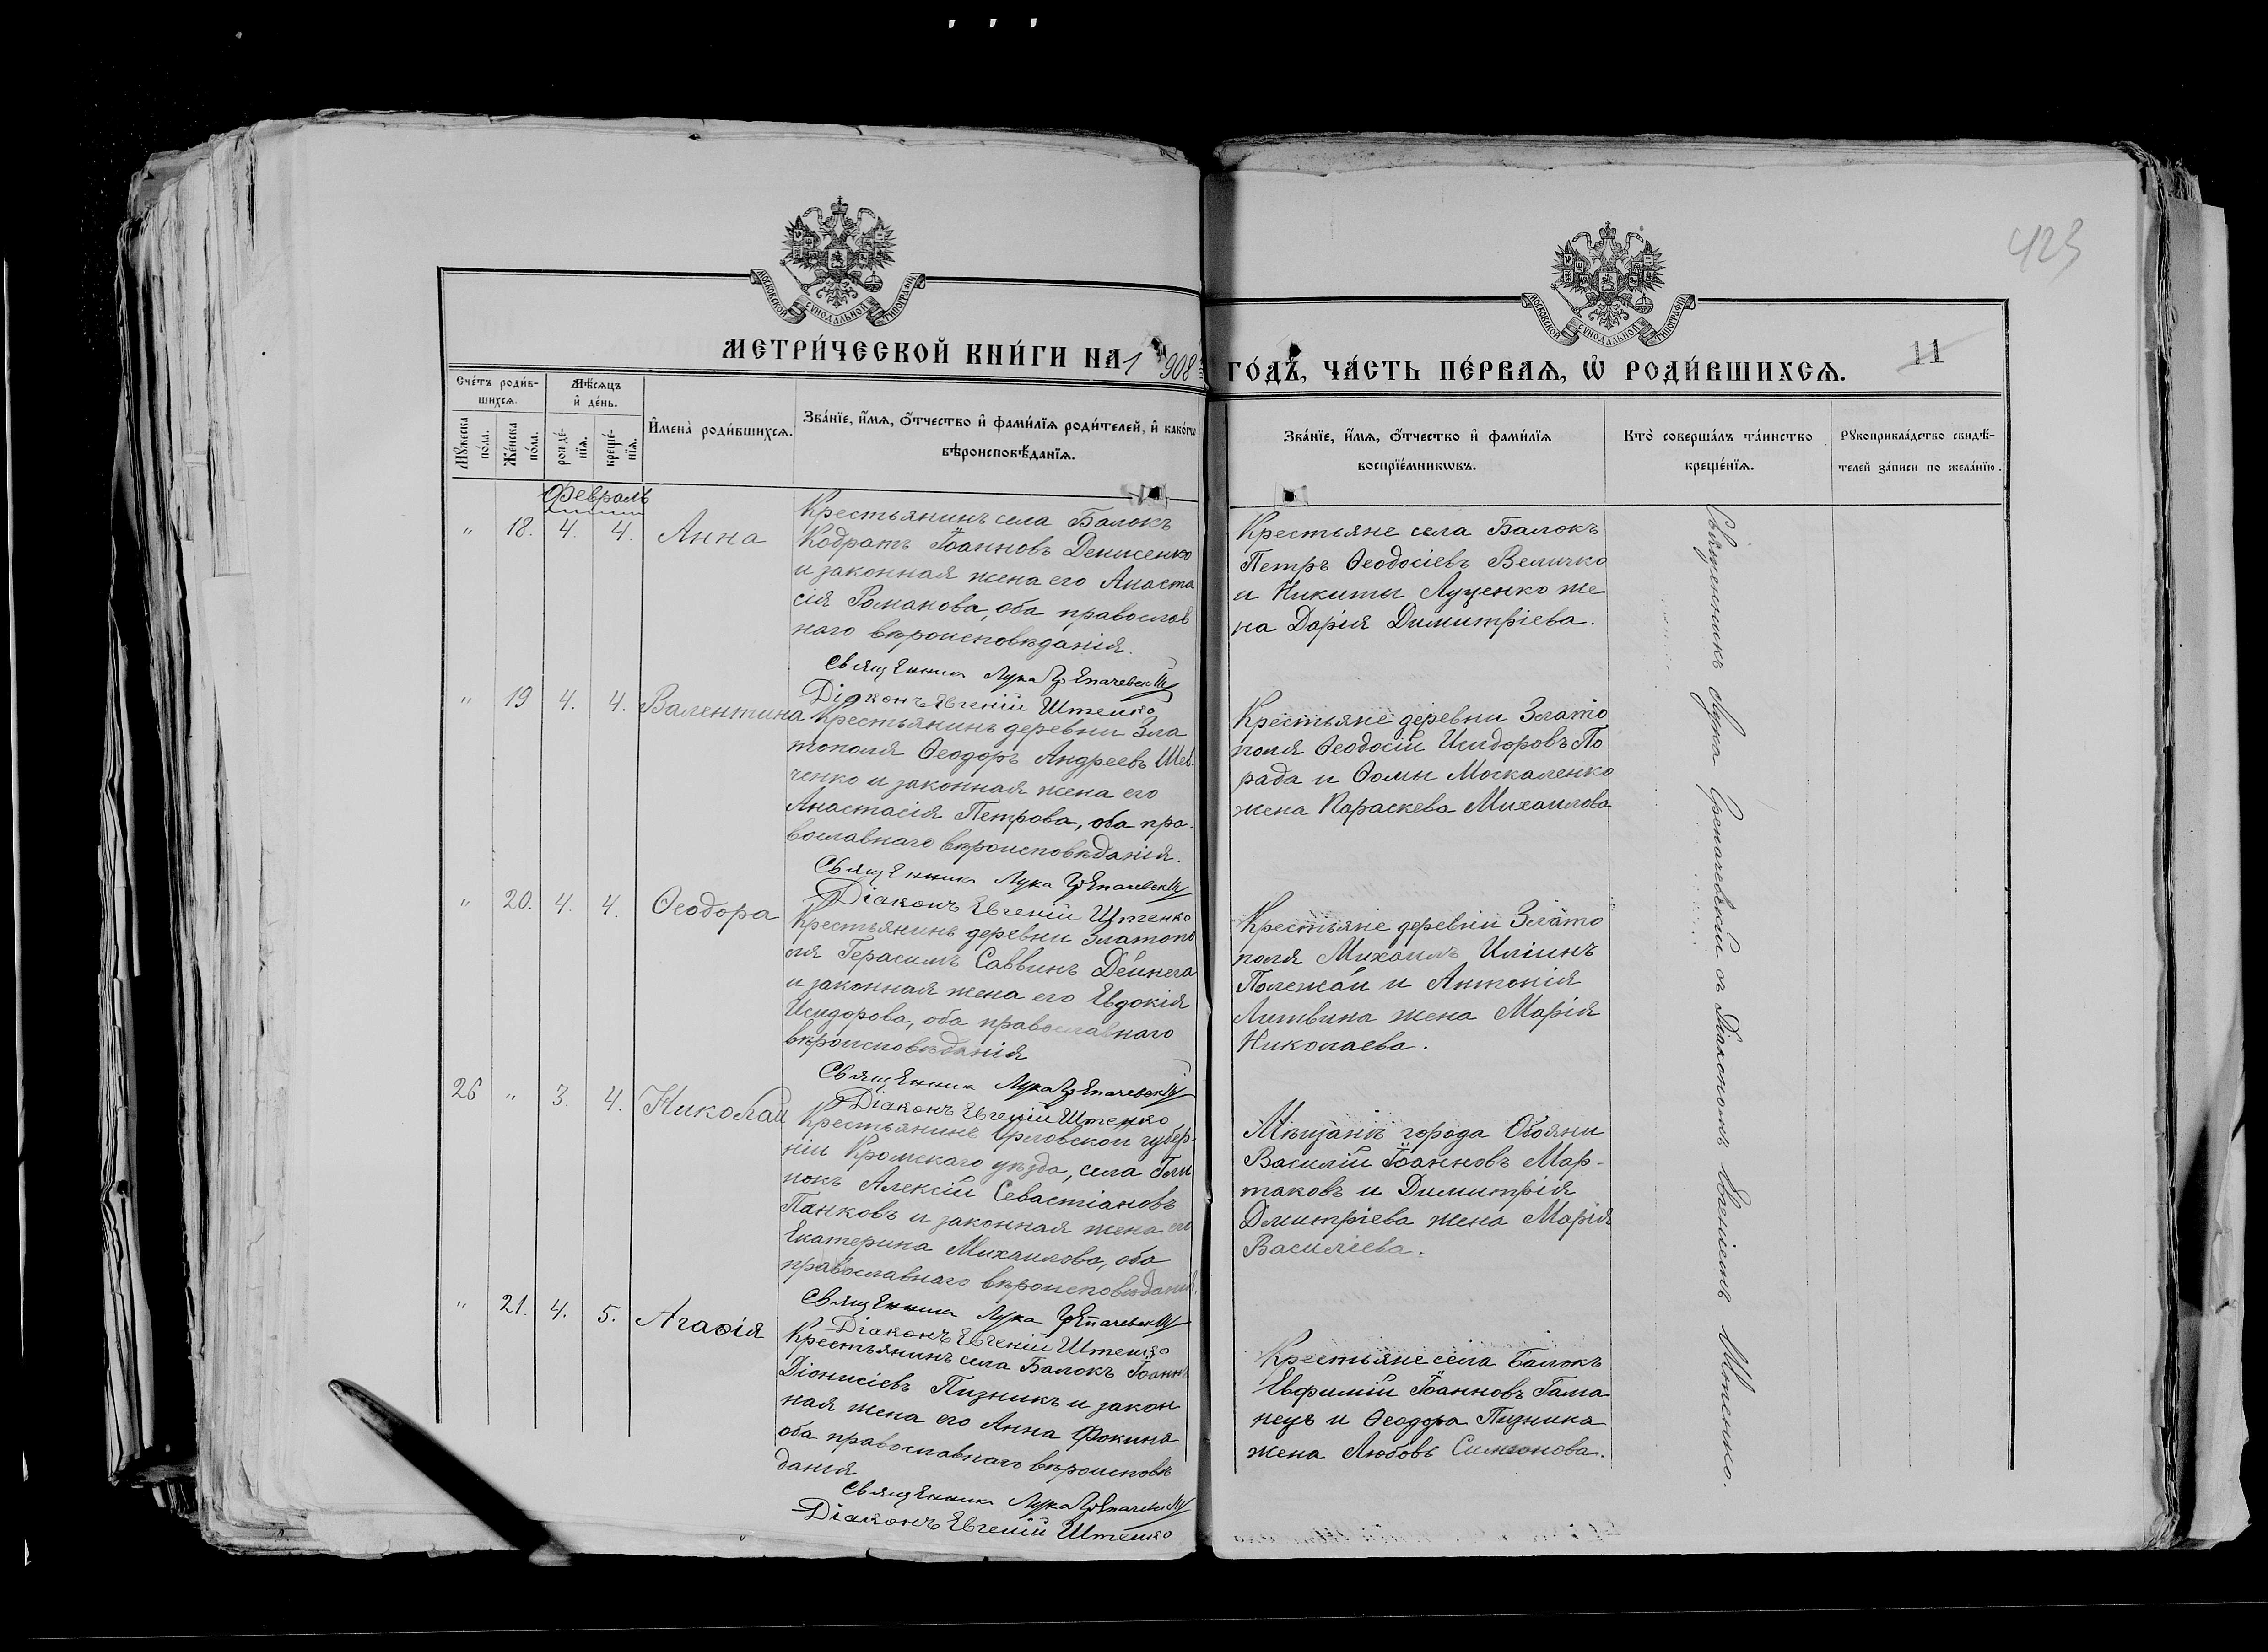 423
МОСКОВСКОЙ СѴНОДАЛЬНОЙ ТИПОГРАФІИ
МОСКОВСКОЙ СѴНОДАЛЬНОЙ ТИПОГРАФІИ
МЕТРИ́ЧЕСКОЙ КНИ́ГИ НА 1908
ГО́ДЪ, ЧА́СТЬ ПЕ́РВАѦ, Ѡ҆ РОДИ́ВШИХСѦ.
11
Сче́тъ роди́в-
шихсѧ.
Мѣ́сѧцъ
и҆ де́нь.
Мꙋ́жеска
по́ла.
Же́нска
по́ла.
рожде́-
нїѧ.
креще́-
нїѧ.
И҆мена̀ роди́вшихсѧ.
Зва́нїе, и҆́мѧ, ѻ҆́тчество и҆ фами́лїѧ роди́телей, и҆ како́гѡ
вѣроисповѣ́данїѧ.
Зва́нїе, и҆́мѧ, ѻ҆́тчество и҆ фами́лїѧ
воспрїе́мникѡвъ.
Кто̀ соверша́лъ та́инство
креще́нїѧ.
Рꙋкоприкла́дство свидѣ́-
телей за́писи по жела́нїю.
Февраль
" 18. 4. 4. Анна
Крестьянинъ села Балокъ
Кодратъ Іоанновъ Денисенко
и законная жена его Анаста
сія Романова, оба православ
наго вѣроисповѣданія.
Священникъ Лука Грепачевскій
Діаконъ Евгеній Штенко
Крестьяне села Балокъ
Петръ Ѳеодосіевъ Величко
и Никиты Луценко же
на Дарія Димитріева.
" 19 4. 4. Валентина
Крестьянинъ деревни Зла
тополя Ѳеодоръ Андреевъ Шев
ченко и законная жена его
Анастасія Петрова, оба пра
вославнаго вѣроисповѣданія.
Священникъ Лука Грепачевскій
Діаконъ Евгеній Штенко
Крестьяне деревни Злато
поля Ѳеодосій Исидоровъ По
рада и Ѳомы Москаленко
жена Параскева Михаилова
" 20. 4. 4. Ѳеодора
Крестьянинъ деревни Златопо
ля Герасимъ Саввинъ Дейнега
и законная жена его Евдокія
Исидорова, оба православнаго
вѣроисповѣданія
Священникъ Лука Грепачевскій
Діаконъ Евгеній Штенко
Крестьяне деревни Злато
поля Михаилъ Иліинъ
Полежай и Антонія
Литвина жена Марія
Николаева.
26 " 3. 4. Николай
Крестьянинъ Орловской губер-
ніи Кромскаго уѣзда, села Гли
нокъ Алексій Севастіановъ
Панковъ и законная жена его
Екатерина Михаилова, оба
православнаго вѣроисповѣданія.
Священникъ Лука Грепачевскій
Діаконъ Евгеній Штенко
Мѣщанѣ города Обояни
Василій Іоанновъ Мар-
таковъ и Димитрія
Дмитріева жена Марія
Василіева.
" 21. 4. 5. Агаѳія
Крестьянинъ села Балокъ Іоаннъ
Діонисіевъ Пизникъ и закон
ная жена его Анна Фокина
оба православнаго вѣроисповѣ
данія
Священникъ Лука Грепачевскій
Діаконъ Евгеній Штенко
Крестьяне села Балокъ
Евфимій Іоанновъ Гама
нецъ и Ѳеодора Пизника
жена Любовь Симеонова.
Священникъ Лука Грепачевскій съ Діакономъ Евгеніемъ Штенко.